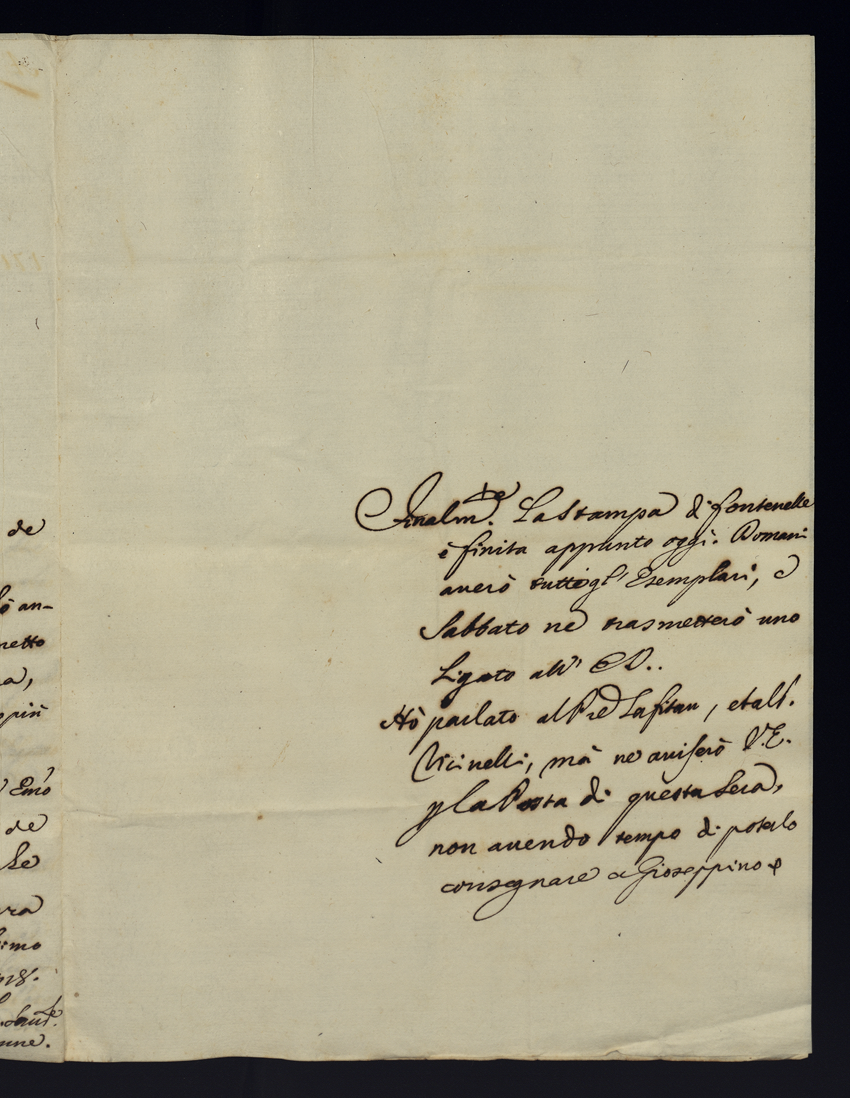 de
an-
netto
a,
Em̃o
de
Le
ra
imo
Finalm.te La Stampa di fontenelle
è finita appunto oggi. Domani
averò tutti gl' Esemplari, e
Sabbato ne trasmetterò uno
Ligato all' E.V..
Hò parlato al Pre Lafitau, et al S.
Vicinelli, mà ne aviserò V.E.
p la Posta di questa sera,
non avendo tempo di poterlo
consegnare a Gioseppino